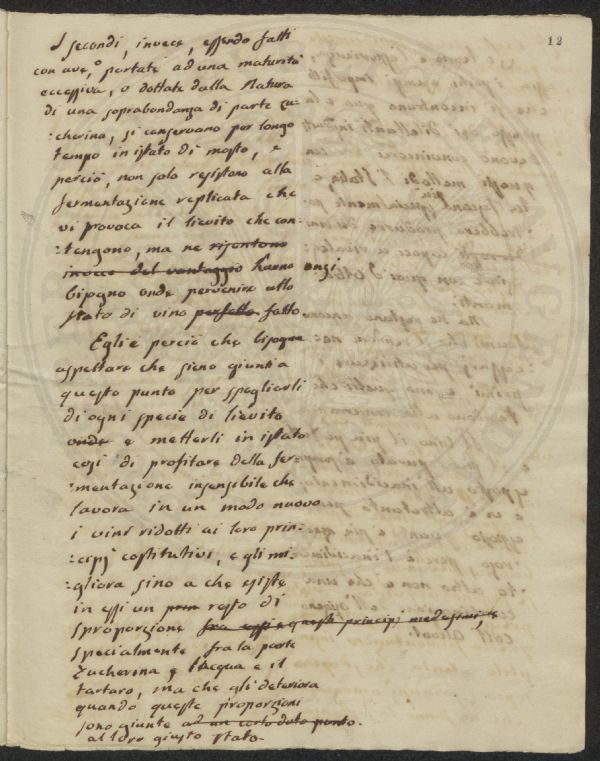 12
I secondi, invece, essendo fatti
con uve, o portate ad una maturità
eccessiva, o dottate dalla Natura
di una soprabondanza di parte zu-
-cherina, si conservano per longo
tempo in istato di mosto, e
perciò, non solo resistono alla
fermentazione replicata che
vi provoca il lievito che con-
-tengono, ma ne risentono
invece del vantaggio hanno anzi
bisogno onde pervenire allo
stato di vino perfetto fatto.
Egli è perciò che bisogna
aspettare che sieno giunti a
questo punto per spogliarli
di ogni specie di lievito
onde e metterli in istato
così di profitare della fer-
-mentazione insensibile che
lavora in un modo nuovo
i vini ridotti ai loro prin-
-cipj costitutivi, e gli mi-
-gliora sino a che esiste
in essi un resto di
sproporzione fra essi e questi principj medesimi, e
specialmente fra la parte
zucherina e l'acqua e il
tartaro, ma che gli deteriora
quando queste proporzioni
sono giunte ad un certo dato punto.
al loro giusto stato.